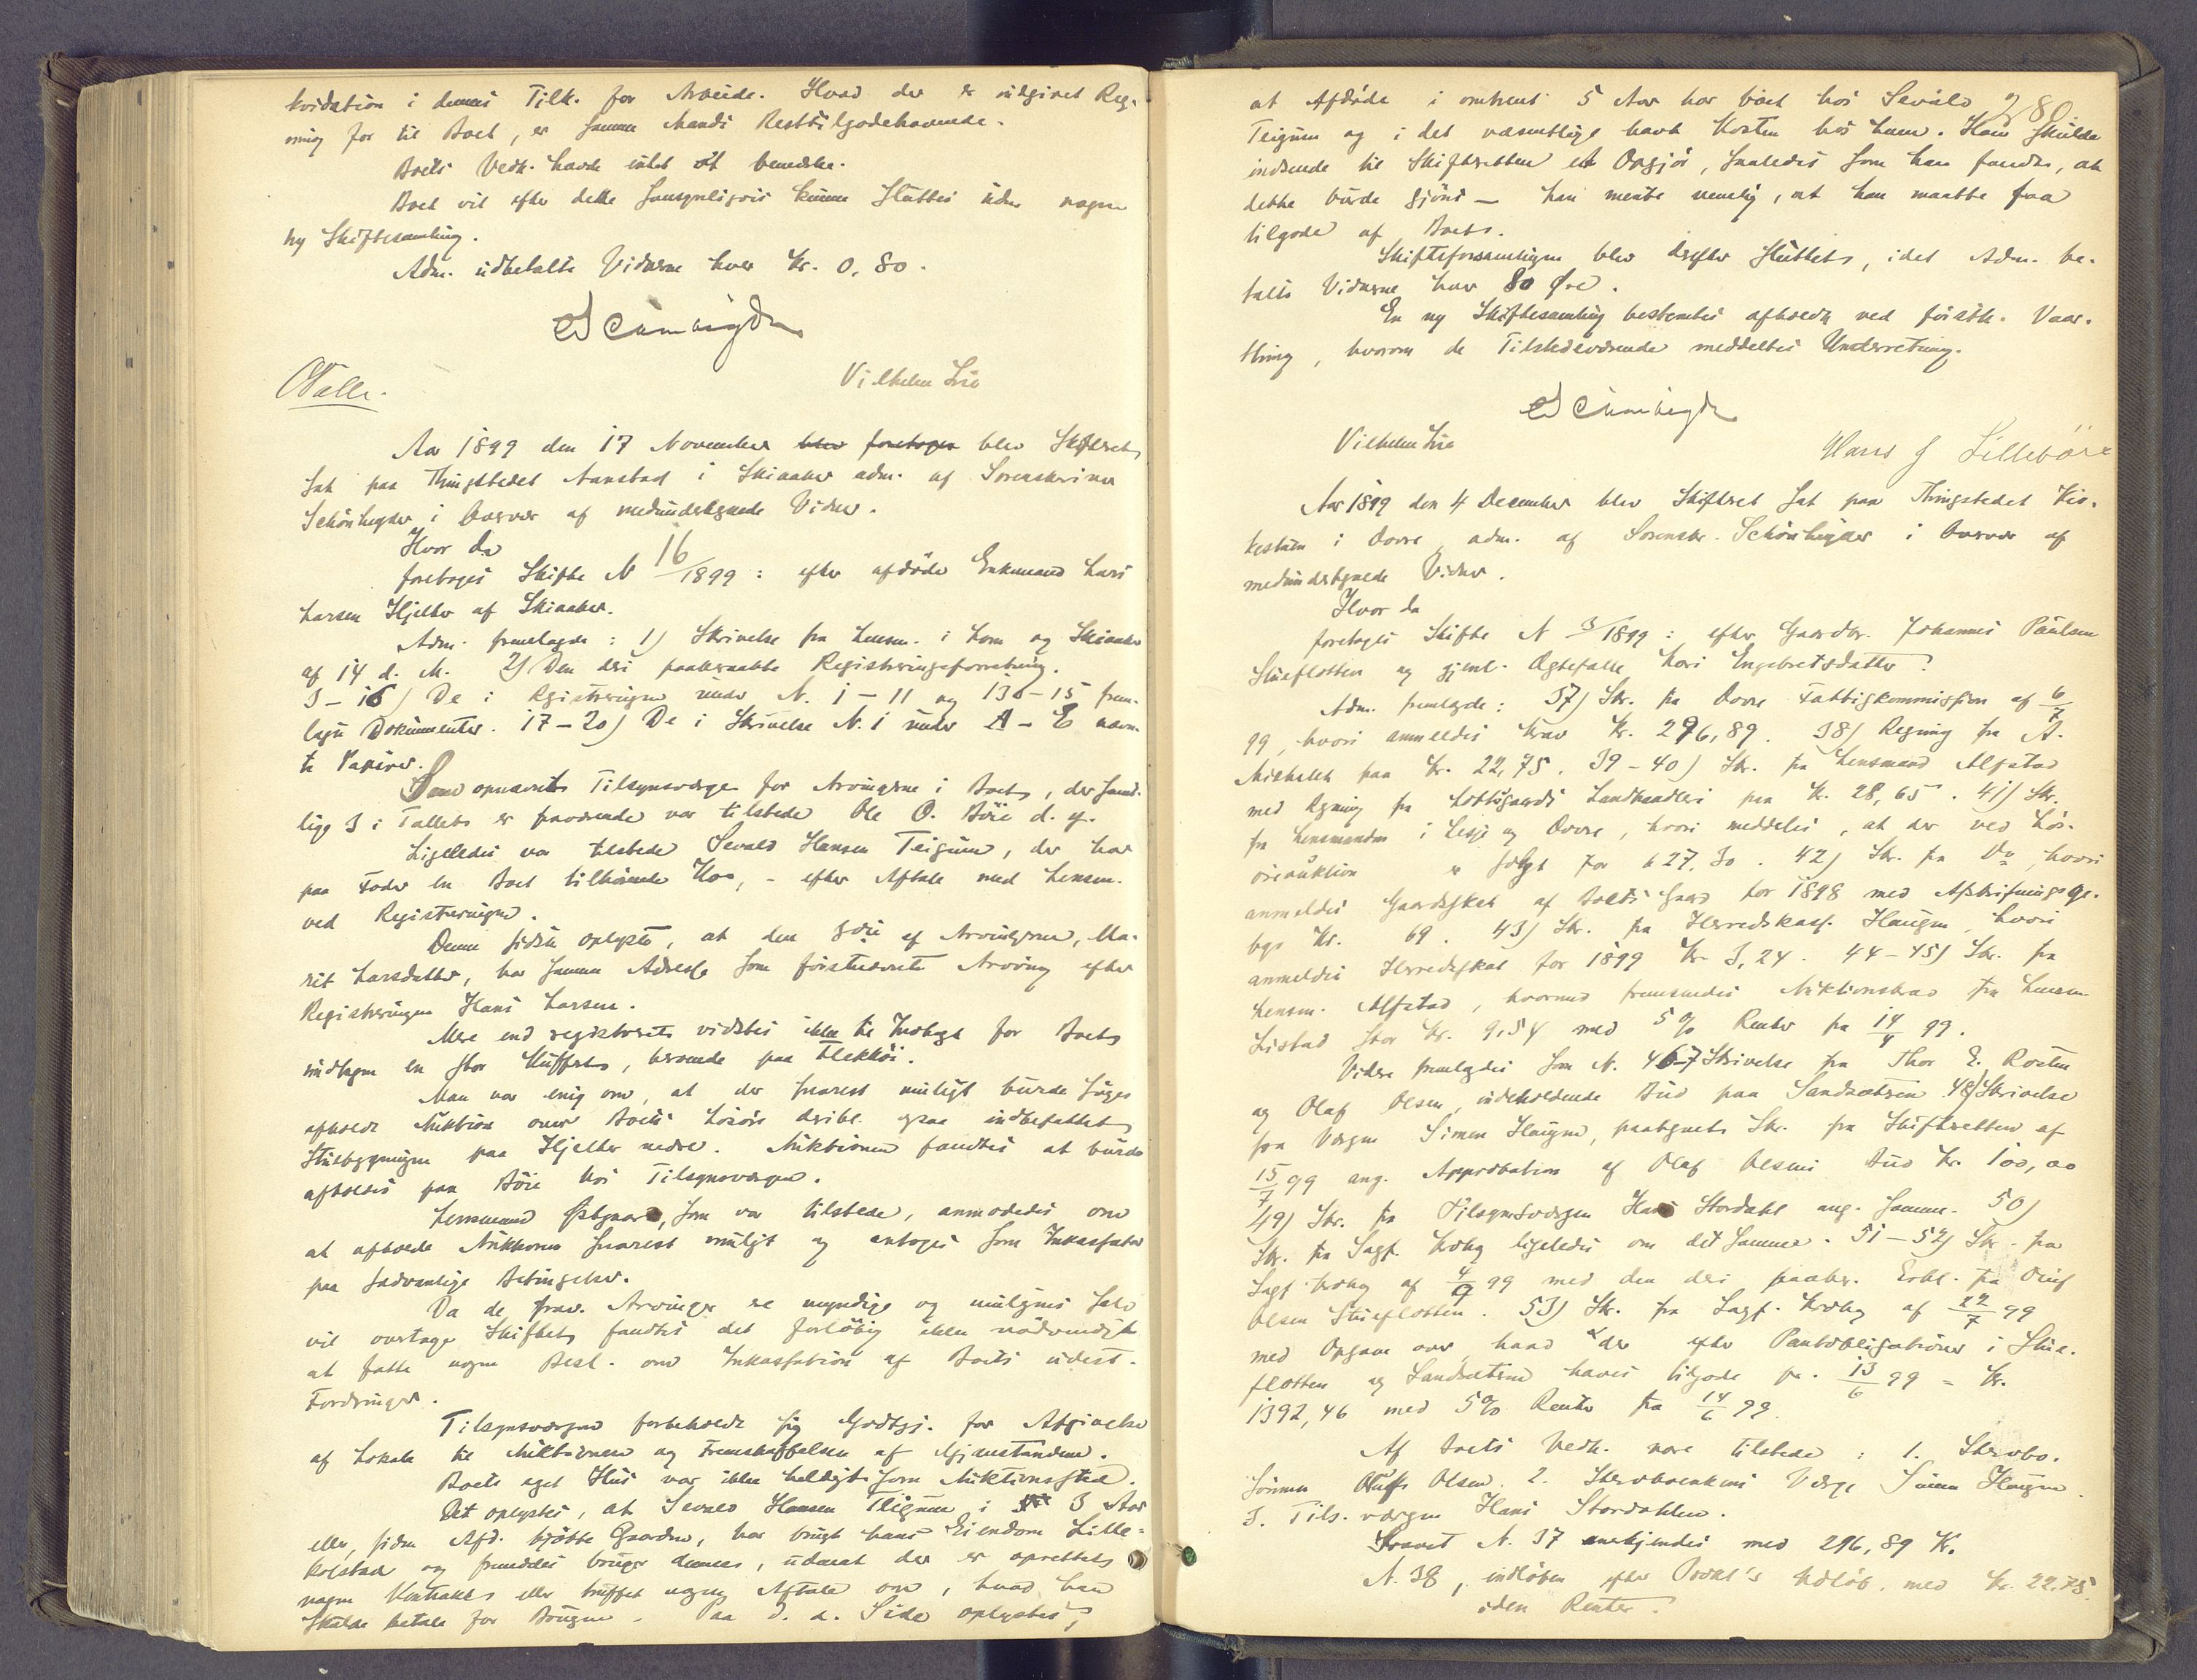 kvidation i dennes Tilk. for Arbeide. Hvad der er indgivet Reg-
ning for til Boet, er samme Mands Resttilgodehavende.
Boets Vedk. havde intet at bemerke.
Boet vil efter dette sansynligvis kunne sluttes uden nogen
ny Skiftesamling.
Adm. udbetalte Vidnerne hver Kr. 0,80.
Schønheyder
Vilhelm Lie
Aar 1899 den 17 November blev foretagen blev Skifteret
sat paa Thingstedet Aanstad i Skiaaker adm. af Sorenskriver
Schönheyder i Overvær af medundertegnede Vidner.
Hvor da
foretoges Skifte N 16/1899: efter afdöde Enkemand Lars
Larsen Hjelter af Skiaaker.
Adm. fremlagde: 1) Skrivelse fra Lensm. i Lom og Skiaaker
af 14 d. M. 2) Den deri paaberaabte Registreringsforretning.
3-16) De i Registreringen under N. 1-11 og 13-15 frem-
lagte Dokumenter. 17-20) De i Skrivelse N. 1 under A-E nævn-
te Papirer.
Som opnævnt Tilsynsværge for Arvingerne i Boet, der samt-
lige 3 i Tallet er fraværende var tilstede Ole O. Böie d. y.
Ligeledes var tilstede Sevald Hansen Teigum, der har
paa Foder en Boet tilhörende Ko, - efter Aftale med Lensm.
ved Registreringen.
Denne sidste oplyste, at den 3die af Arvingerne, Ma-
rit Larsdatter, har samme Adresse som förstnævnte Arving efter
Registreringen Hans Larsen.
Mere end registreret vidstes ikke til Indtægt for Boet
undtagen en stor Kuffert, beroende paa Flekköi.
Man var enig om, at der snarest muligt burde söges
afholdt Auktion over Boets Lösöre deribl. ogsaa indbefattet
Stuebygningen paa Hjelter nedre. Auktionen fandtes at burde
afholdes paa Böie hos Tilsynsværgen.
Lensmand Østgaard, som var tilstede, anmodedes om
at afholde Auktionen snarest muligt og antoges som Inkassator
paa sædvanlige Betingelser.
Da de frav. Arvinger er myndige og muligens selv
vil overtage Skiftet fandtes det forlöbig ikke nödvendigt
at fatte nogen Besl. om Inkassation af Boets udest.
Fordringer.
Tilsynsværgen forbeholdt sig Godtgj. for Afgivelse
af Lokale til Auktionen og Fremskaffelsen af Gjenstandene.
Boets eget Hus var ikke heldigt som Auktionssted.
Det oplystes, at Sevald Hansen Teigum i 3 Aar
eller, siden Afd. kjöbte Gaarden, har brugt hans Eiendom Lille-
kolstad og fremdeles bruger denne, uden at der er oprettet
nogen Kontrakt eller truffet nogen Aftale om, hvad han
skulde betale for Brugen. Paa d. a. Side oplystes,
280.
at Afdöde i omtrent 5 Aar har boet hos Sevald
Teigum og i det væsentlige havt Kosten hos ham. Han skulde
indsende til Skifteretten et Opgjör, saaledes som han fandt, at
dette burde gjöres - han mente nemlig, at han maatte faa
tilgode af Boet.
Skifteforsamlingen blev derefter sluttet, idet Adm. be-
talte Vidnerne hver 80 Øre.
En ny Skiftesamling bestemtes afholdt ved förstk. Vaar-
thing, hvorom de Tilstedeværende meddeltes Underretning.
Schønheyder
Vilhelm Lie
Hans J Lillebö
Aar 1899 den 4 December blev Skifteret sat paa Thingstedet
i Dovre adm. af Sorenskr. Schönheyder i Overvær af
medundertegnede Vidner.
Hvor da
foretoges Skifte N 3/1899: efter Gaardbr. Johannes Paulsen
Stueflotten og gjenl. Ægtefælle Kari Engebretsdatter.
Adm. fremlagde: 37) Skr. fra Dovre Fattigkommission af 6/7
99, hvori anmeldes Krav Kr. 296,89. 38) Regning fra A.
paa Kr. 22,75. 39-40) Skr. fra Lensmand Alfstad
med Regning fra Landhandleri paa Kr. 28,65. 41) Skr.
fra Lensmanden i Lesje og Dovre, hvori meddeles, at der ved Lös-
öreauktion er solgt for 627.30. 42) Skr. fra Do, hvori
anmeldes Gaardskat af Boets Gaard for 1898 med Afskrivningsge-
byr Kr. 69. 43) Skr. fra Herredskass. Haugen, hvori
anmeldes Herredsskat for 1899 Kr. 3,24. 44-45) Skr. fra
Lensm. Alfstad, hvormed fremsendes Auktionskrav fra Lensm.
Listad stor Kr. 9,54 med 5% Renter fra 14/4 99.
Videre fremlagdes som N. 46-7 Skrivelse fra Thor E.
og Olaf Olsen, indeholdende Bud paa Sandsætren. 48) Skrivelse
fra Værgen Simen Haugen, paategnet Skr. fra Skifteretten af
15/7 99 ang. Approbation af Olaf Olsens Bud Kr. 100,00
49) Skr. fra Tilsynsværgen Hans Stordahl ang. samme. 50)
Skr. fra Sagf. ligeledes om det samme. 51-52) Skr. fra
Sagf. af 4/9 99 med den deri paaber. Erkl. fra Oluf
Olsen Stueflotten. 53) Skr. fra Sagf. af 22/7 99
med Opgave over, hvad der efter Pantobligationer i Stue-
flotten og Sandsætren haves tilgode pr. 13/6 99 = Kr.
1392,46 med 5% Renter fra 14/6 99.
Af Boets Vedk. vare tilstede: 1. Stervbo-
sönnen Oluf Olsen. 2. Stervboenkens Værge Simen Haugen.
3. Tils. værgen Hans Stordahlen.
Kravet N. 37 anerkjendes med 296,89 Kr.
N. 38, indlöben efter Proklamas Udlöb, med Kr. 22.75.
uden Renter.